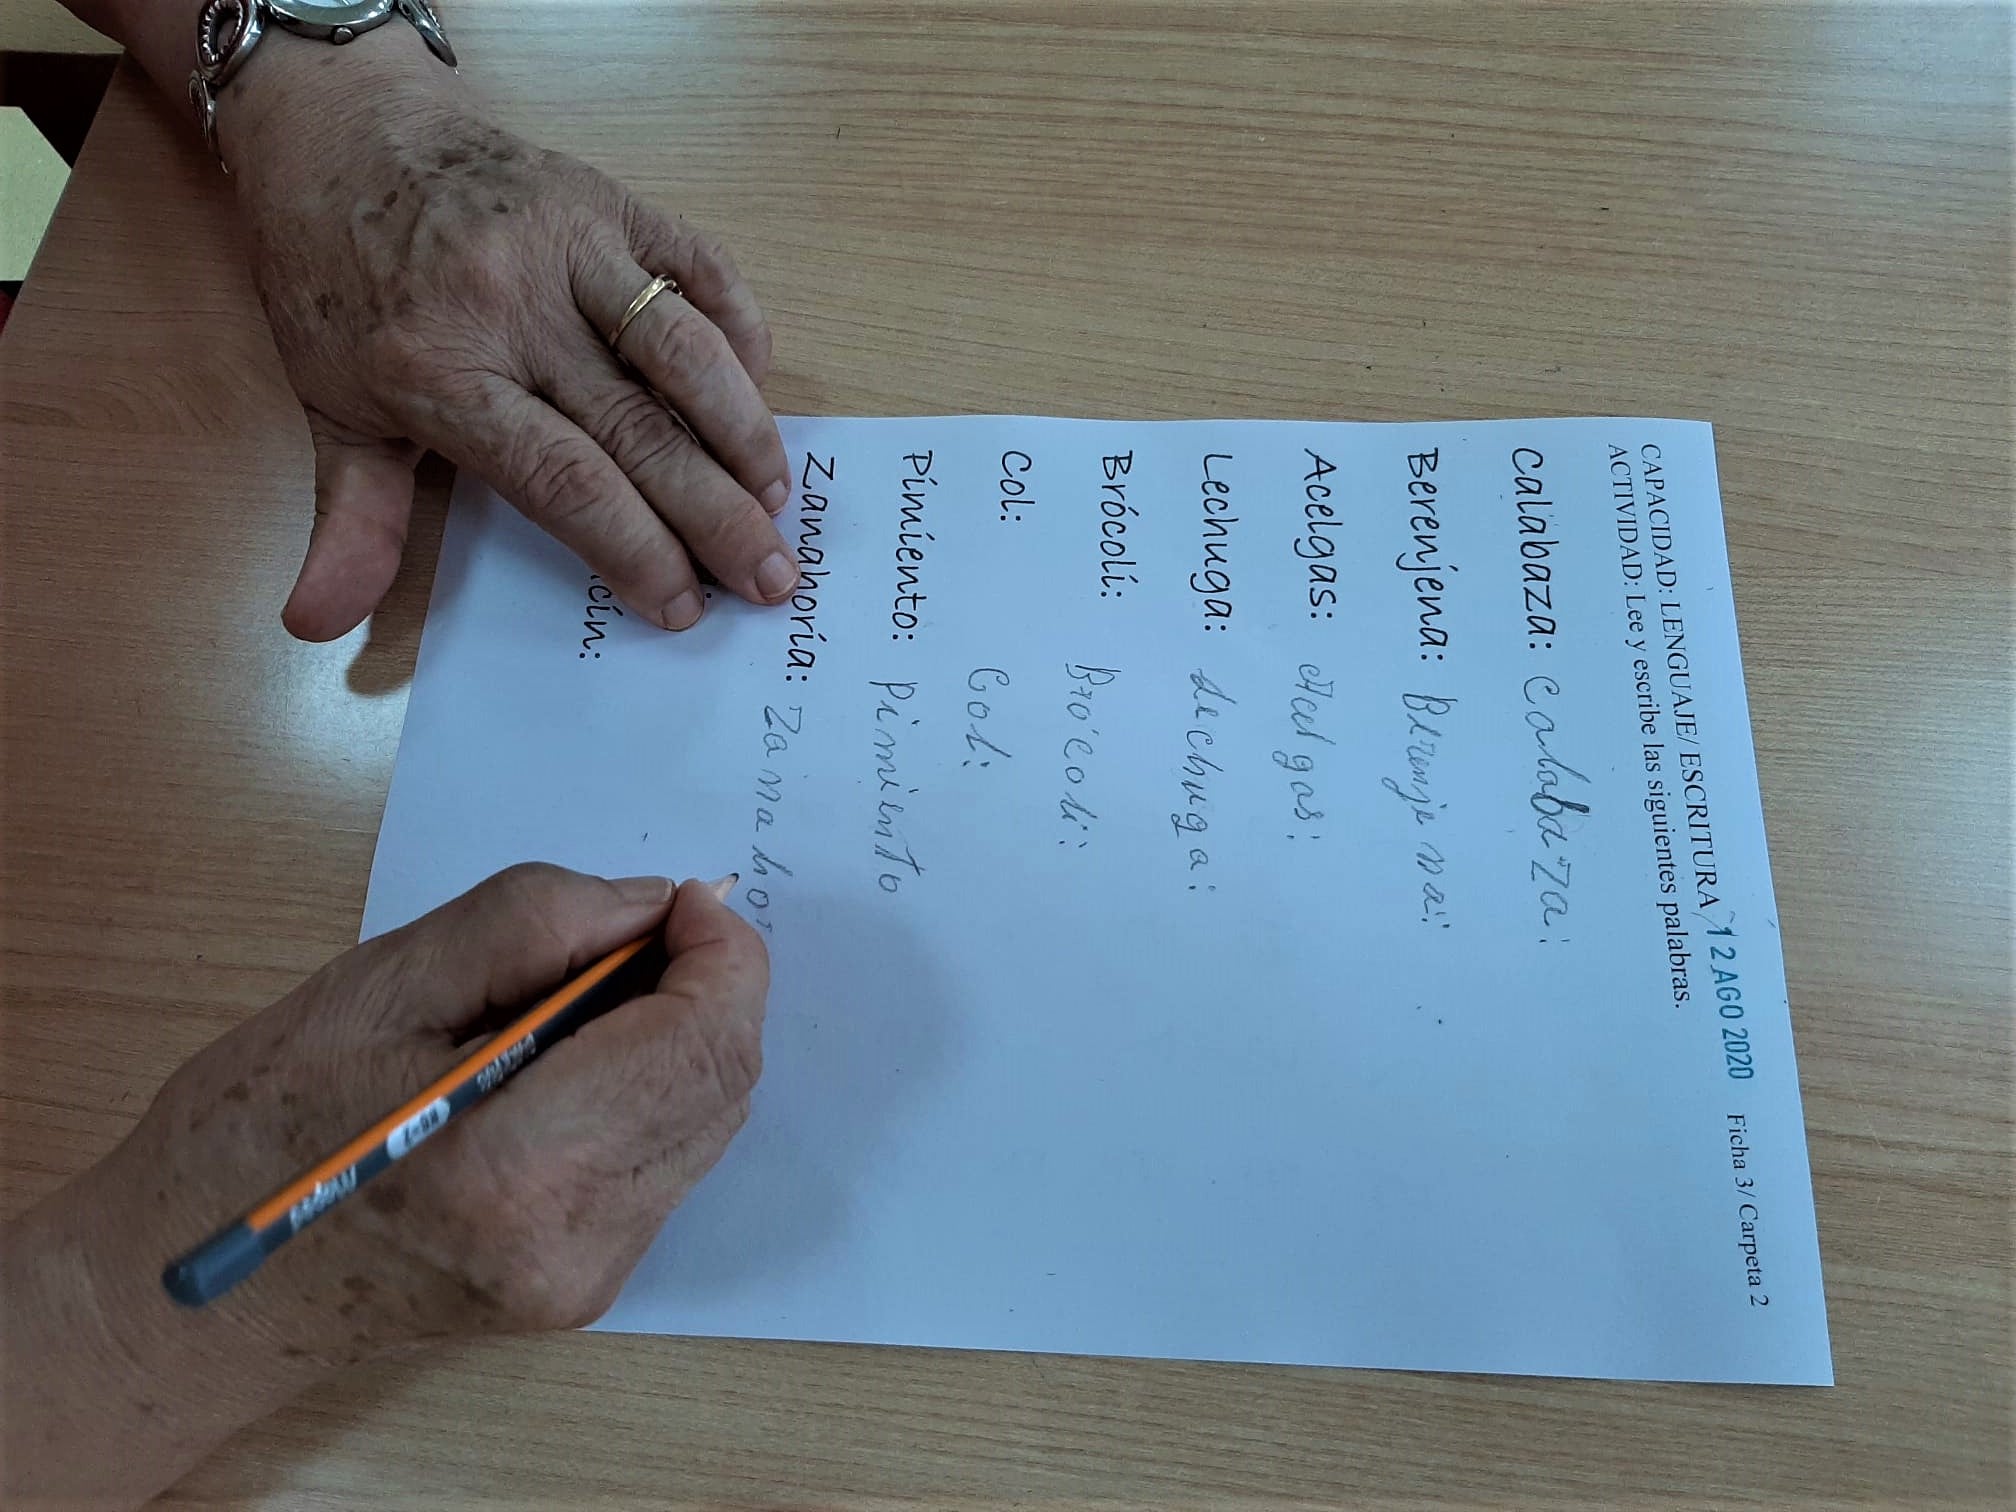 CAPACIDAD: LENGUAJE/ ESCRITURA 12 AGO 2020 Ficha 3/ Carpeta 2
ACTIVIDAD: Lee y escribe las siguientes palabras.
Calabaza: Calabaza:
Berenjena: Berenjena:
Acelgas: Acelgas:
Lechuga: Lechuga:
Brócoli: Brócoli:
Col: Col:
Pimiento: Pimiento
Zanahoria: Zanahor